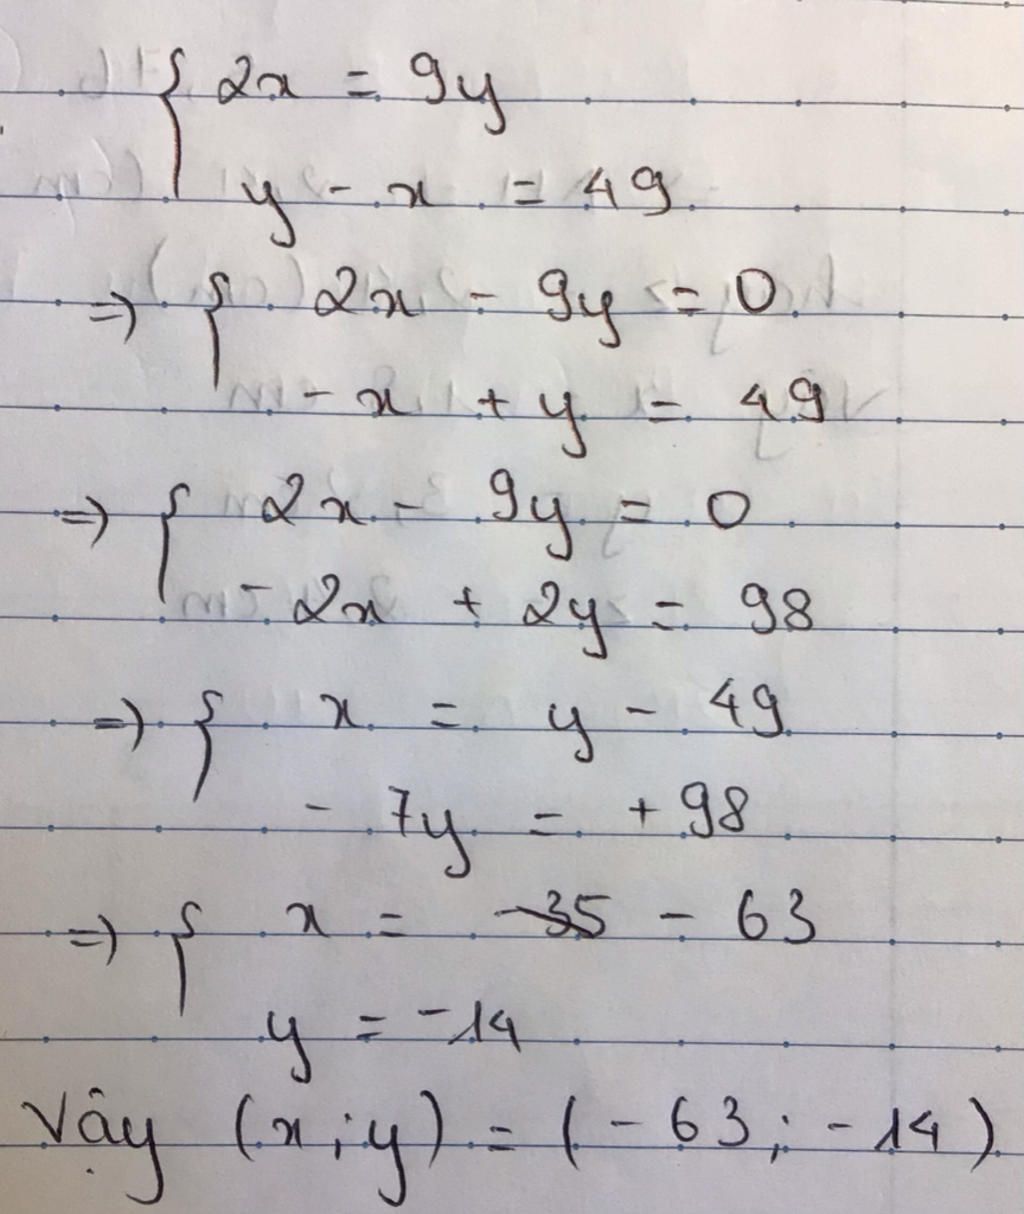 { 2x = 9y
y - x = 49
=> { 2x - 9y = 0
- x + y = 49
=> { 2x - 9y = 0
- 2x + 2y = 98
=> { x = y - 49
- 7y = + 98
=> { x = -35 - 63
y = -14
Vậy (x; y) = (- 63; - 14)